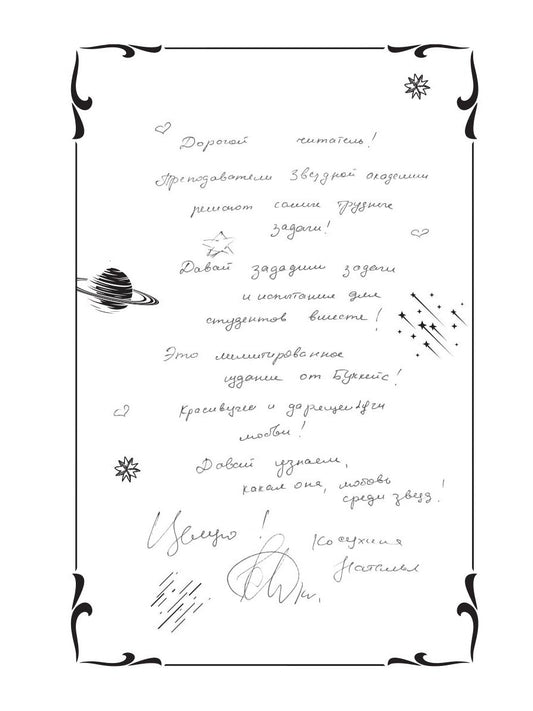 Дорогой читатель!
Преподаватели Звездной академии
решают самые трудные
задачи!
Давай зададим задачи
и испытание для
студентов вместе!
Это лимитированное
издание от Буккейс!
Красивущее и
любви!
Давай узнаем,
какая она, любовь
среди звезд!
Целую!
Косухина
Наталья